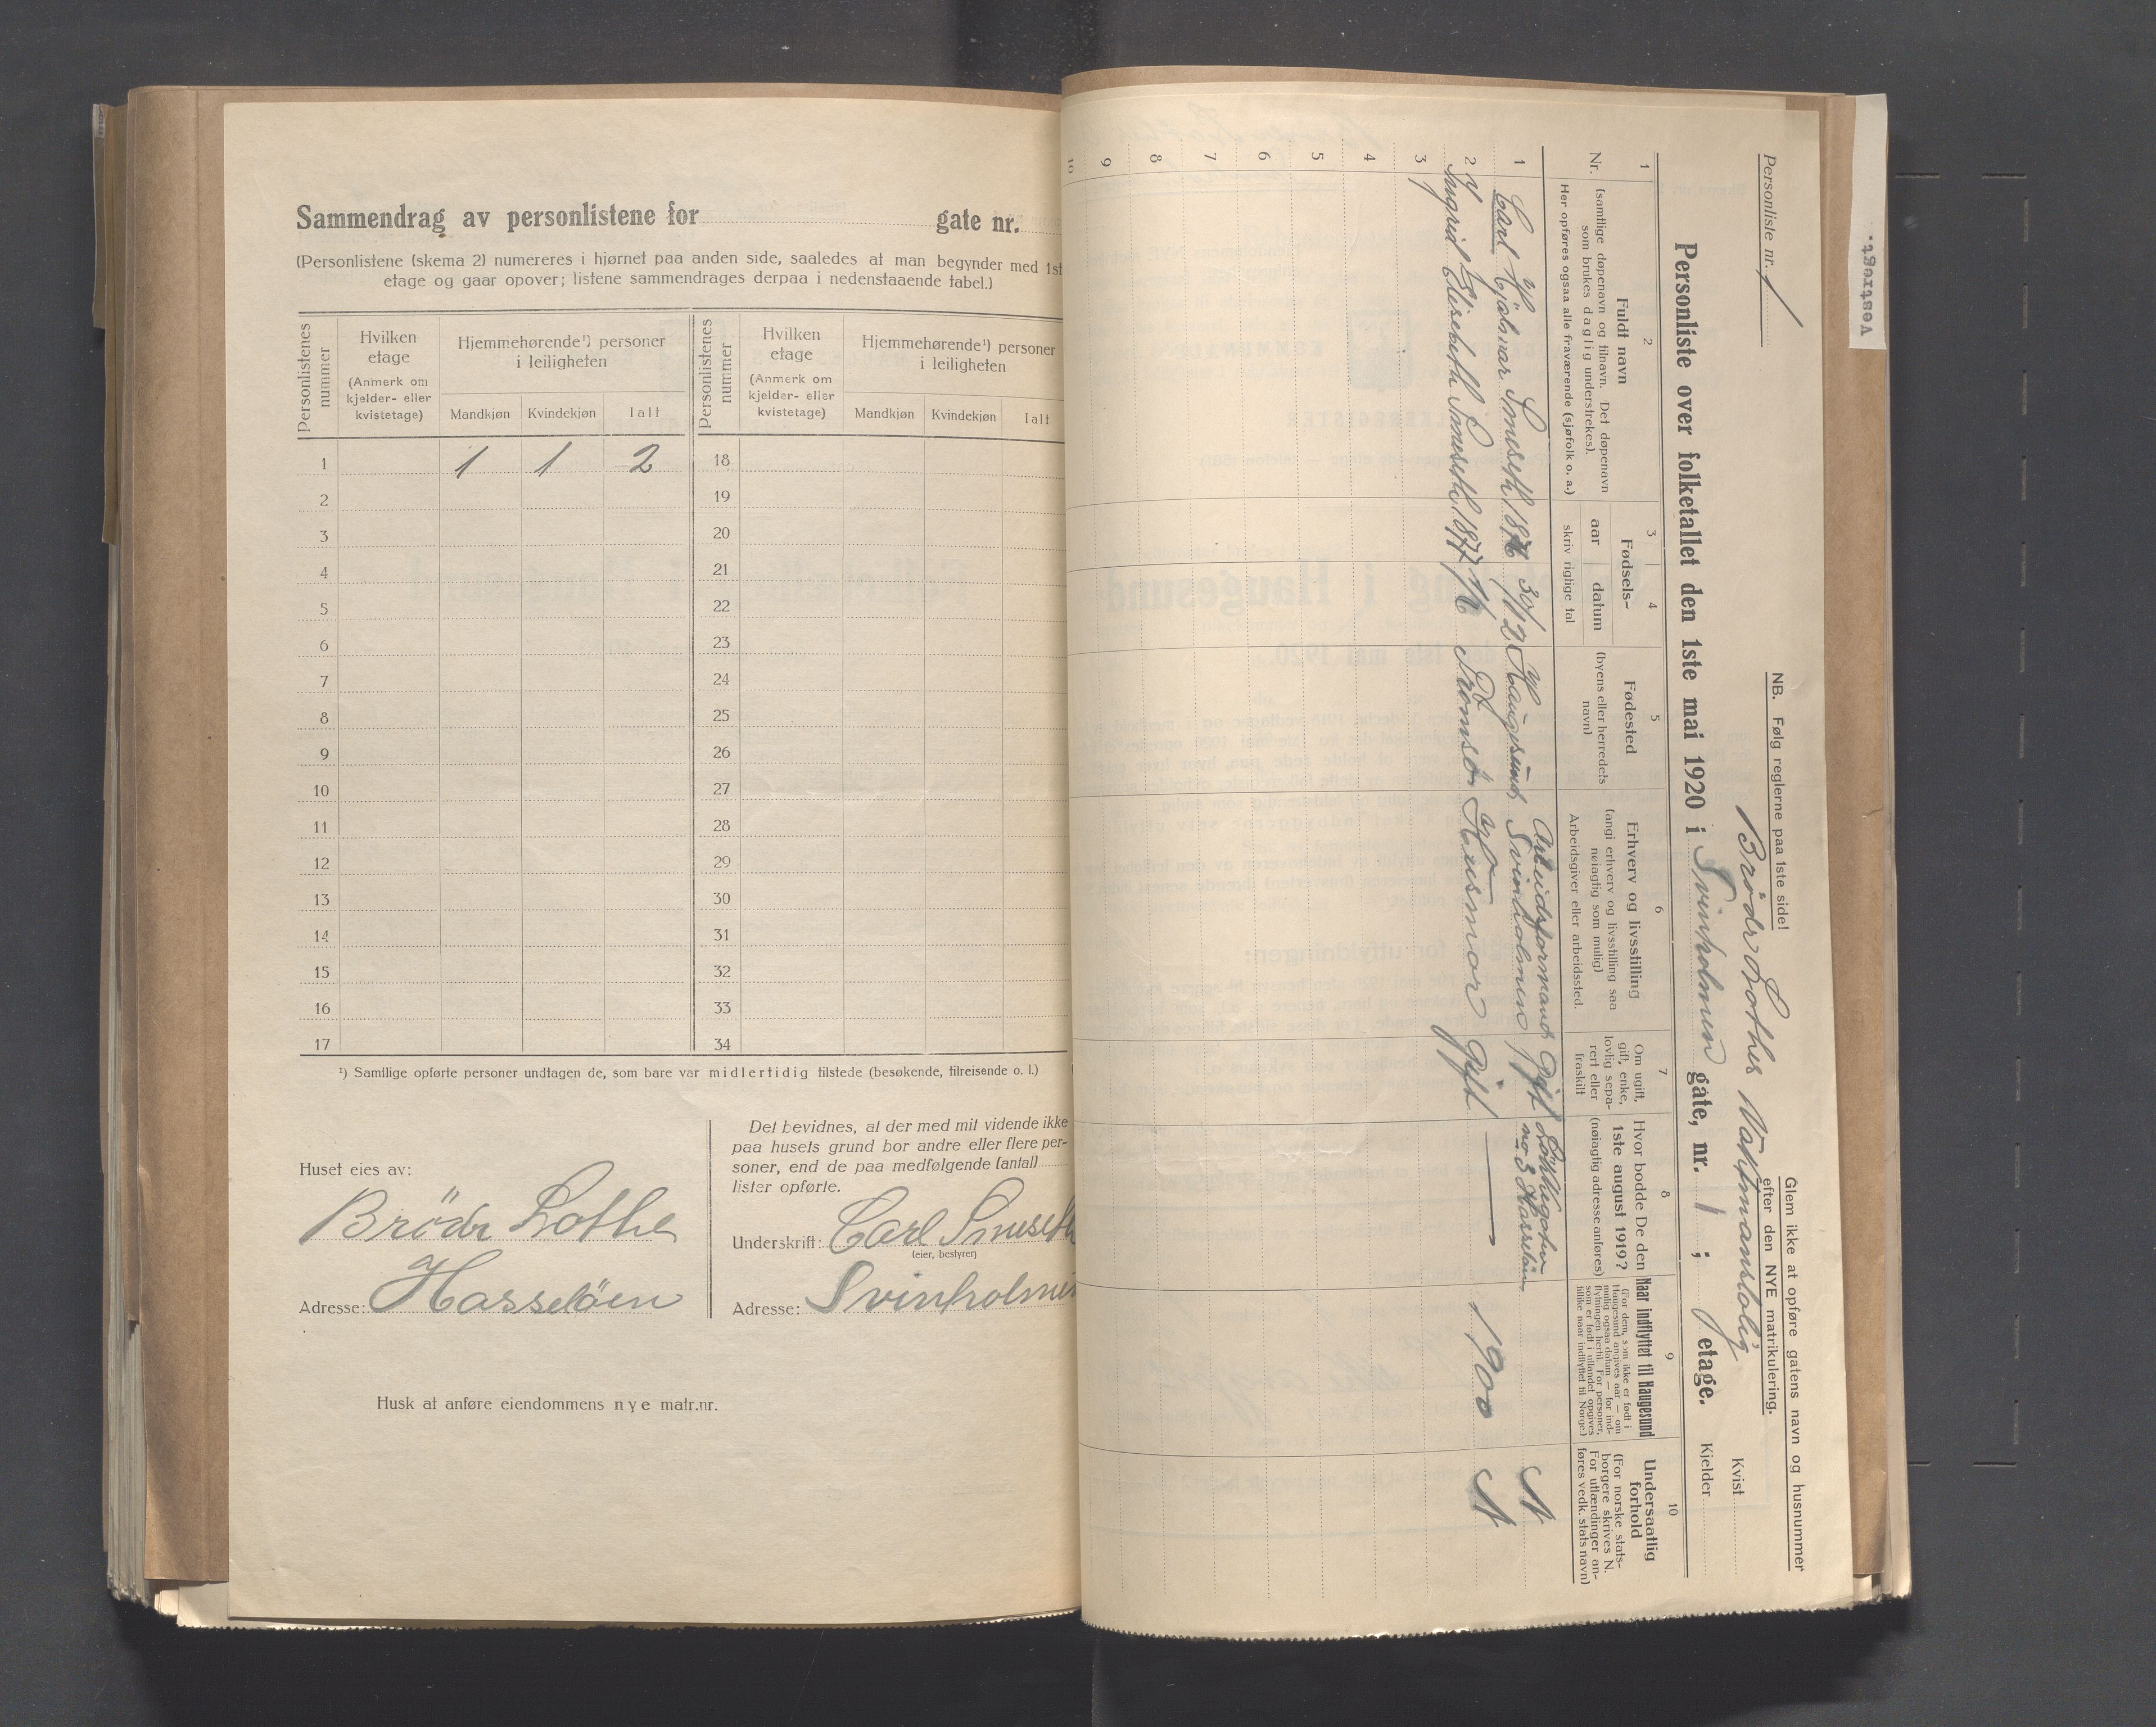 Sammendrag av personlistene for gate nr.
(Personlistene (skema 2) numereres i hjørnet paa anden side, saaledes at man begynder med 1st
etage og gaar opover; listene sammendrages derpaa i nedenstaaende tabel.)
Personlistenes nummer
Hvilken etage
(Anmerk om kjelder- eller kvistetage)
Hjemmehørende¹) personer i leiligheten
Mandkjøn Kvindekjøn Ialt
Personlistenes nummer
Hvilken etage
(Anmerk om kjelder- eller kvistetage)
Hjemmehørende¹) personer i leiligheten
Mandkjøn Kvindekjøn Ialt
1 1 1 2 18
2 19
3 20
4 21
5 22
6 23
7 24
8 25
9 26
10 27
11 28
12 29
13 30
14 31
15 32
16 33
17 34
¹) Samtlige opførte personer undtagen de, som bare var midlertidig tilstede (besøkende, tilreisende o. l.)
Huset eies av:
Brödr Lothe
Adresse: Hasselöen
Det bevidnes, at der med mit vidende ikke
paa husets grund bor andre eller flere per-
soner, end de paa medfølgende (antal)
lister opførte.
Underskrift: Carl Smeseth
(eier, bestyrer)
Adresse: Svinholmen
Husk at anføre eiendommens nye matr.nr.
Vestregt.
Personliste nr. 1
NB. Følg reglerne paa 1ste side!
Glem ikke at opføre gatens navn og husnummer
efter den NYE matrikulering.
Brödr Lothes Vaktmansbolig
Kvist
Personliste over folketallet den 1ste mai 1920 i Svinholmen gate, nr. 1 ; 1 etage.
Kjelder
1 2 3 4 5 6 7 8 9 10
Nr.
Fuldt navn
(samtlige døpenavn og tilnavn. Det døpenavn
som brukes daglig understrekes).
Her opføres ogsaa alle fraværende (sjøfolk o. a.)
Fødsels-
aar datum
skriv rigtige tal
Fødested
(byens eller herredets
navn)
Erhverv og livsstilling
(angi erhverv og livsstilling saa
nøiagtig som mulig)
Arbeidsgiver eller arbeidssted.
Om ugift,
gift, enke,
lovlig sepa-
rert eller
fraskilt
Hvor bodde De den
1ste august 1919?
(nøiagtig adresse anføres)
Naar indflyttet til Haugesund
(For dem, som ikke er født i
Haugesund angives aar — om
mulig ogsaa datum — for ind-
flytningen hertil. For personer,
som er født i utlandet opgives
tillike naar indflyttet til Norge)
Undersaatlig
forhold
(For norske stats-
borgere skrives N.
For utlændinger an-
føres vedk. stats navn)
1 Carl Hjalmar Smeseth 1876 30/12 Haugesund Arbeidsformand Svinholmen Gift no 3 Hasselöen N
2 Ingrid Elisebeth Smeseth 1877 Tromsö Husmor gift — 1900 N
3
4
5
6
7
8
9
10